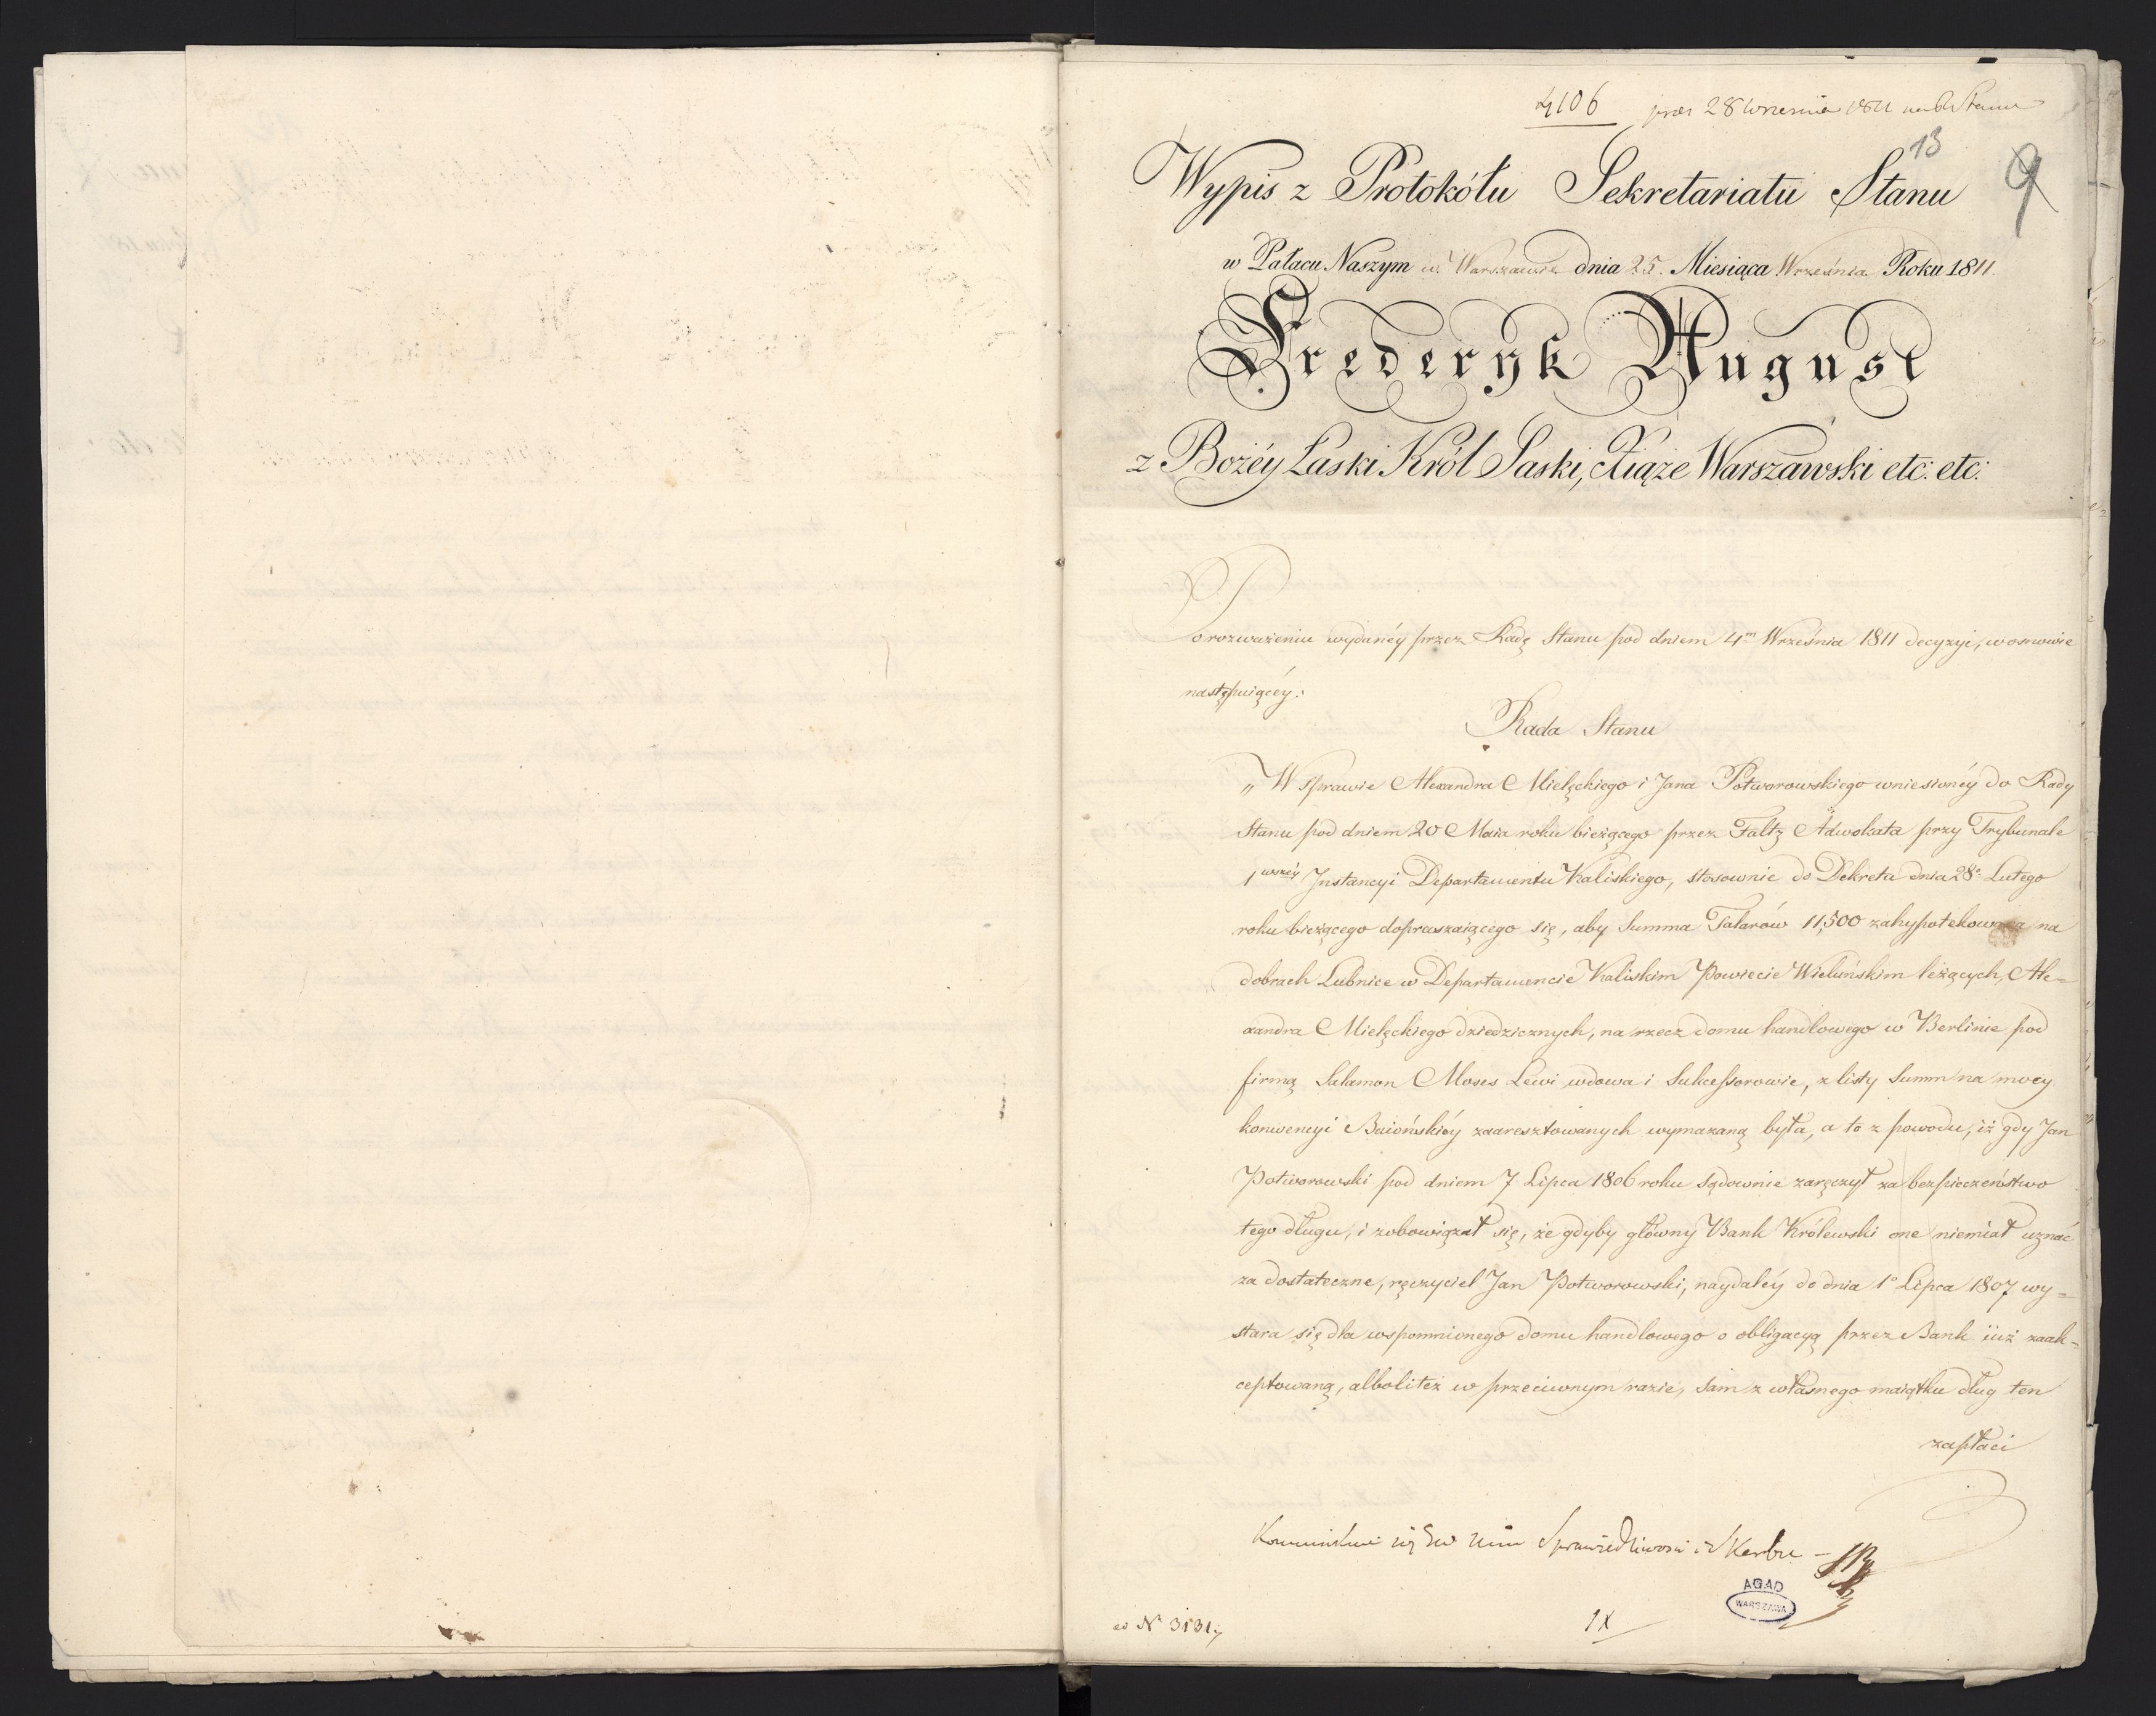 4106 prez 28 Września 1811 na R Stanu
13
9
Wypis z Protokółu Sekretariatu Stanu
w Pałacu Naszym w Warszawie dnia 25. Miesiąca Września Roku 1811.
Frederyk August
z Bożéy Łaski Król Saski, Xiąże Warszawski etc: etc:
Po rozważeniu wydanéy przez Radę Stanu pod dniem 4m Września 1811 decyzyi, w osnowie
następuiącéy:
Rada Stanu
„W sprawie Alexandra Mielęckiego i Jana Potworowskiego wniesionéy do Rady
Stanu pod dniem 20 Maia roku bieżącego przez Faltz Adwokata przy Trybunale
1wszéy Instancyi Departamentu Kaliskiego, stosownie do Dekretu dnia 28o Lutego
roku bieżącego dopraszaiącego się, aby Summa Talarów 11,500 zahypotekowana na
dobrach Lubnice w Departamencie Kaliskim Powiecie Wieluńskim leżących, Ale=
xandra Mielęckiego dziedzicznych, na rzecz domu handlowego w Berlinie pod
firmą Salamon Moses Lewi wdowa i Sukcessorowie, z listy Summ na mocy
konwencyi Baiońskiéy zaaresztowanych wymazaną była, a to z powodu, iż gdy Jan
Potworowski pod dniem 7 Lipca 1806 roku sądownie zaręczył za bezpieczeństwo
tego długu, i zobowiązał się, że gdyby główny Bank Królewski one niemiał uznać
za dostateczne, ręczyciel Jan Potworowski, naydaléy do dnia 1o Lipca 1807 wy=
stara się dla wspomnionego domu handlowego o obligacyą przez Bank iuż zaak=
ceptowaną, albolitéż w przeciwnym razie, sam z własnego maiątku dług ten
zapłaci
Sprawiedliwosci i Skarbu –
AGAD
WARSZAWA
ad N 3131.
IX